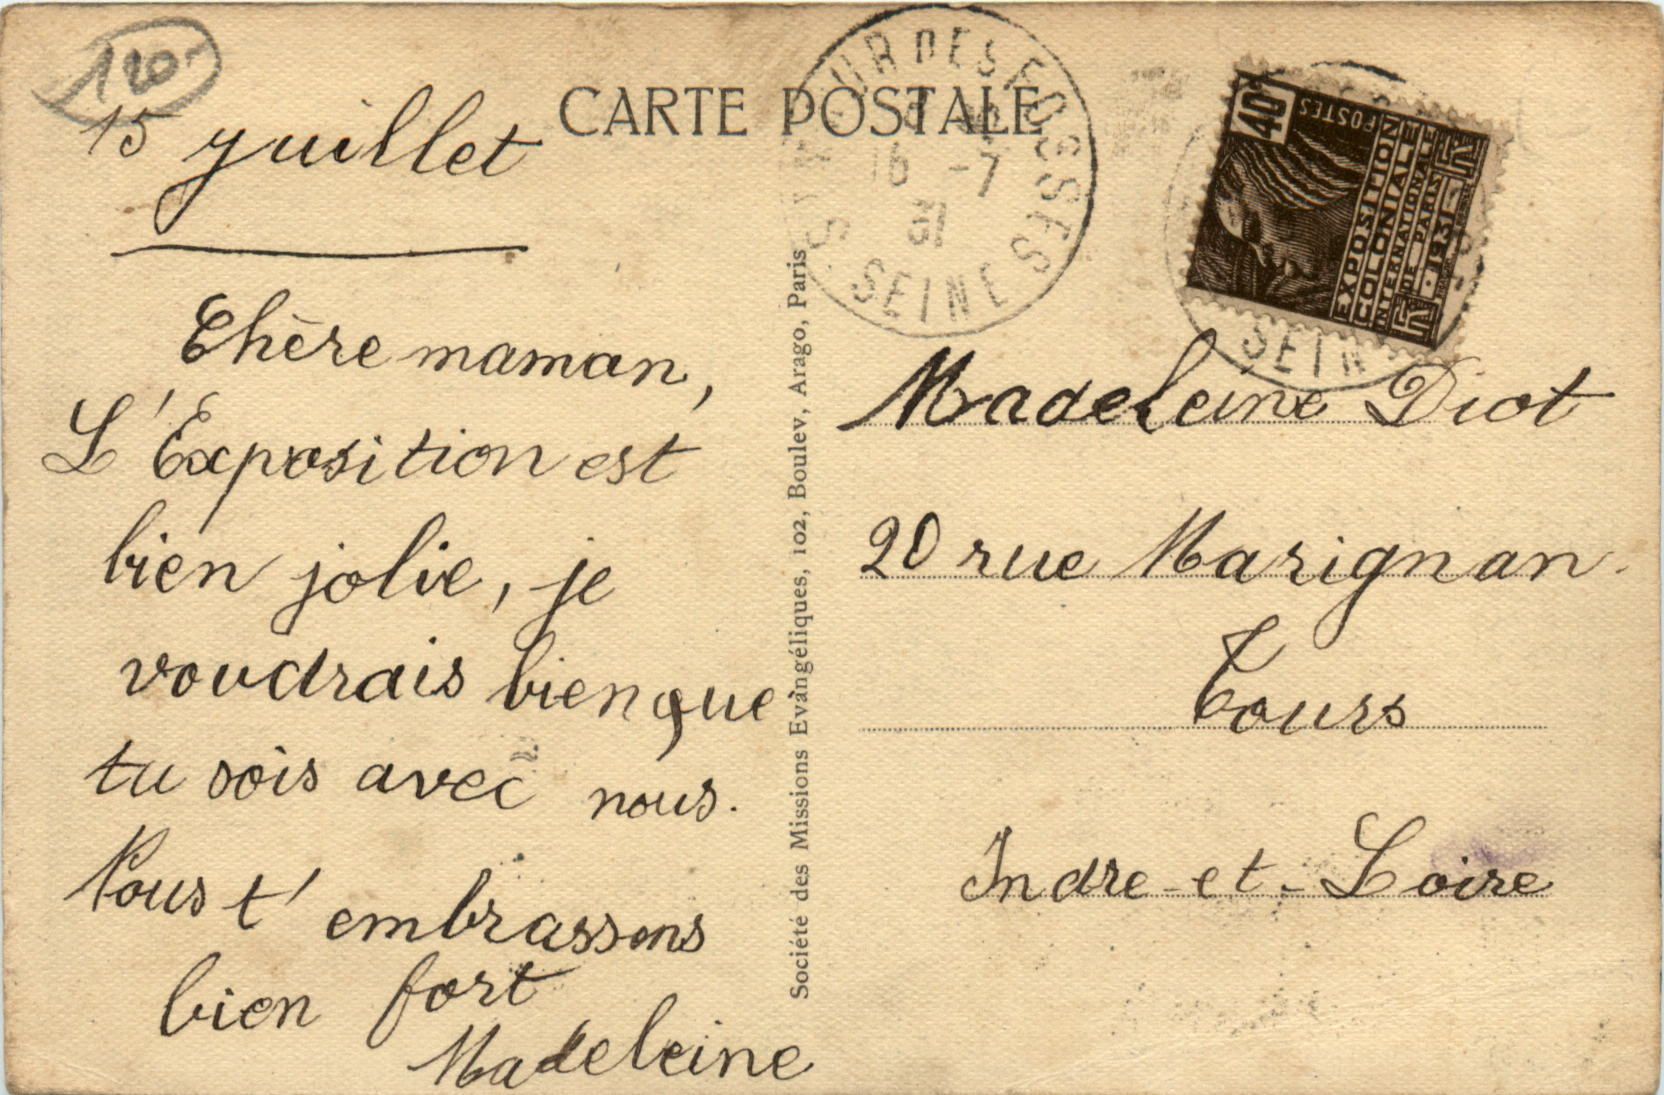 120
15 juillet
CARTE POSTALE
Chère maman,
L'Exposition est
bien jolie, je
voudrais bien que
tu sois avec nous.
Nous t'embrassons
bien fort
Madeleine
Société des Missions Evangéliques, 102, Boulev. Arago, Paris
16 -7
31
SEINE
40c
POSTES
EXPOSITION
COLONIALE
INTERNATIONALE
DE PARIS
1931
SEIN
Madeleine Diot
20 rue Marignan
Tours
Indre-et-Loire